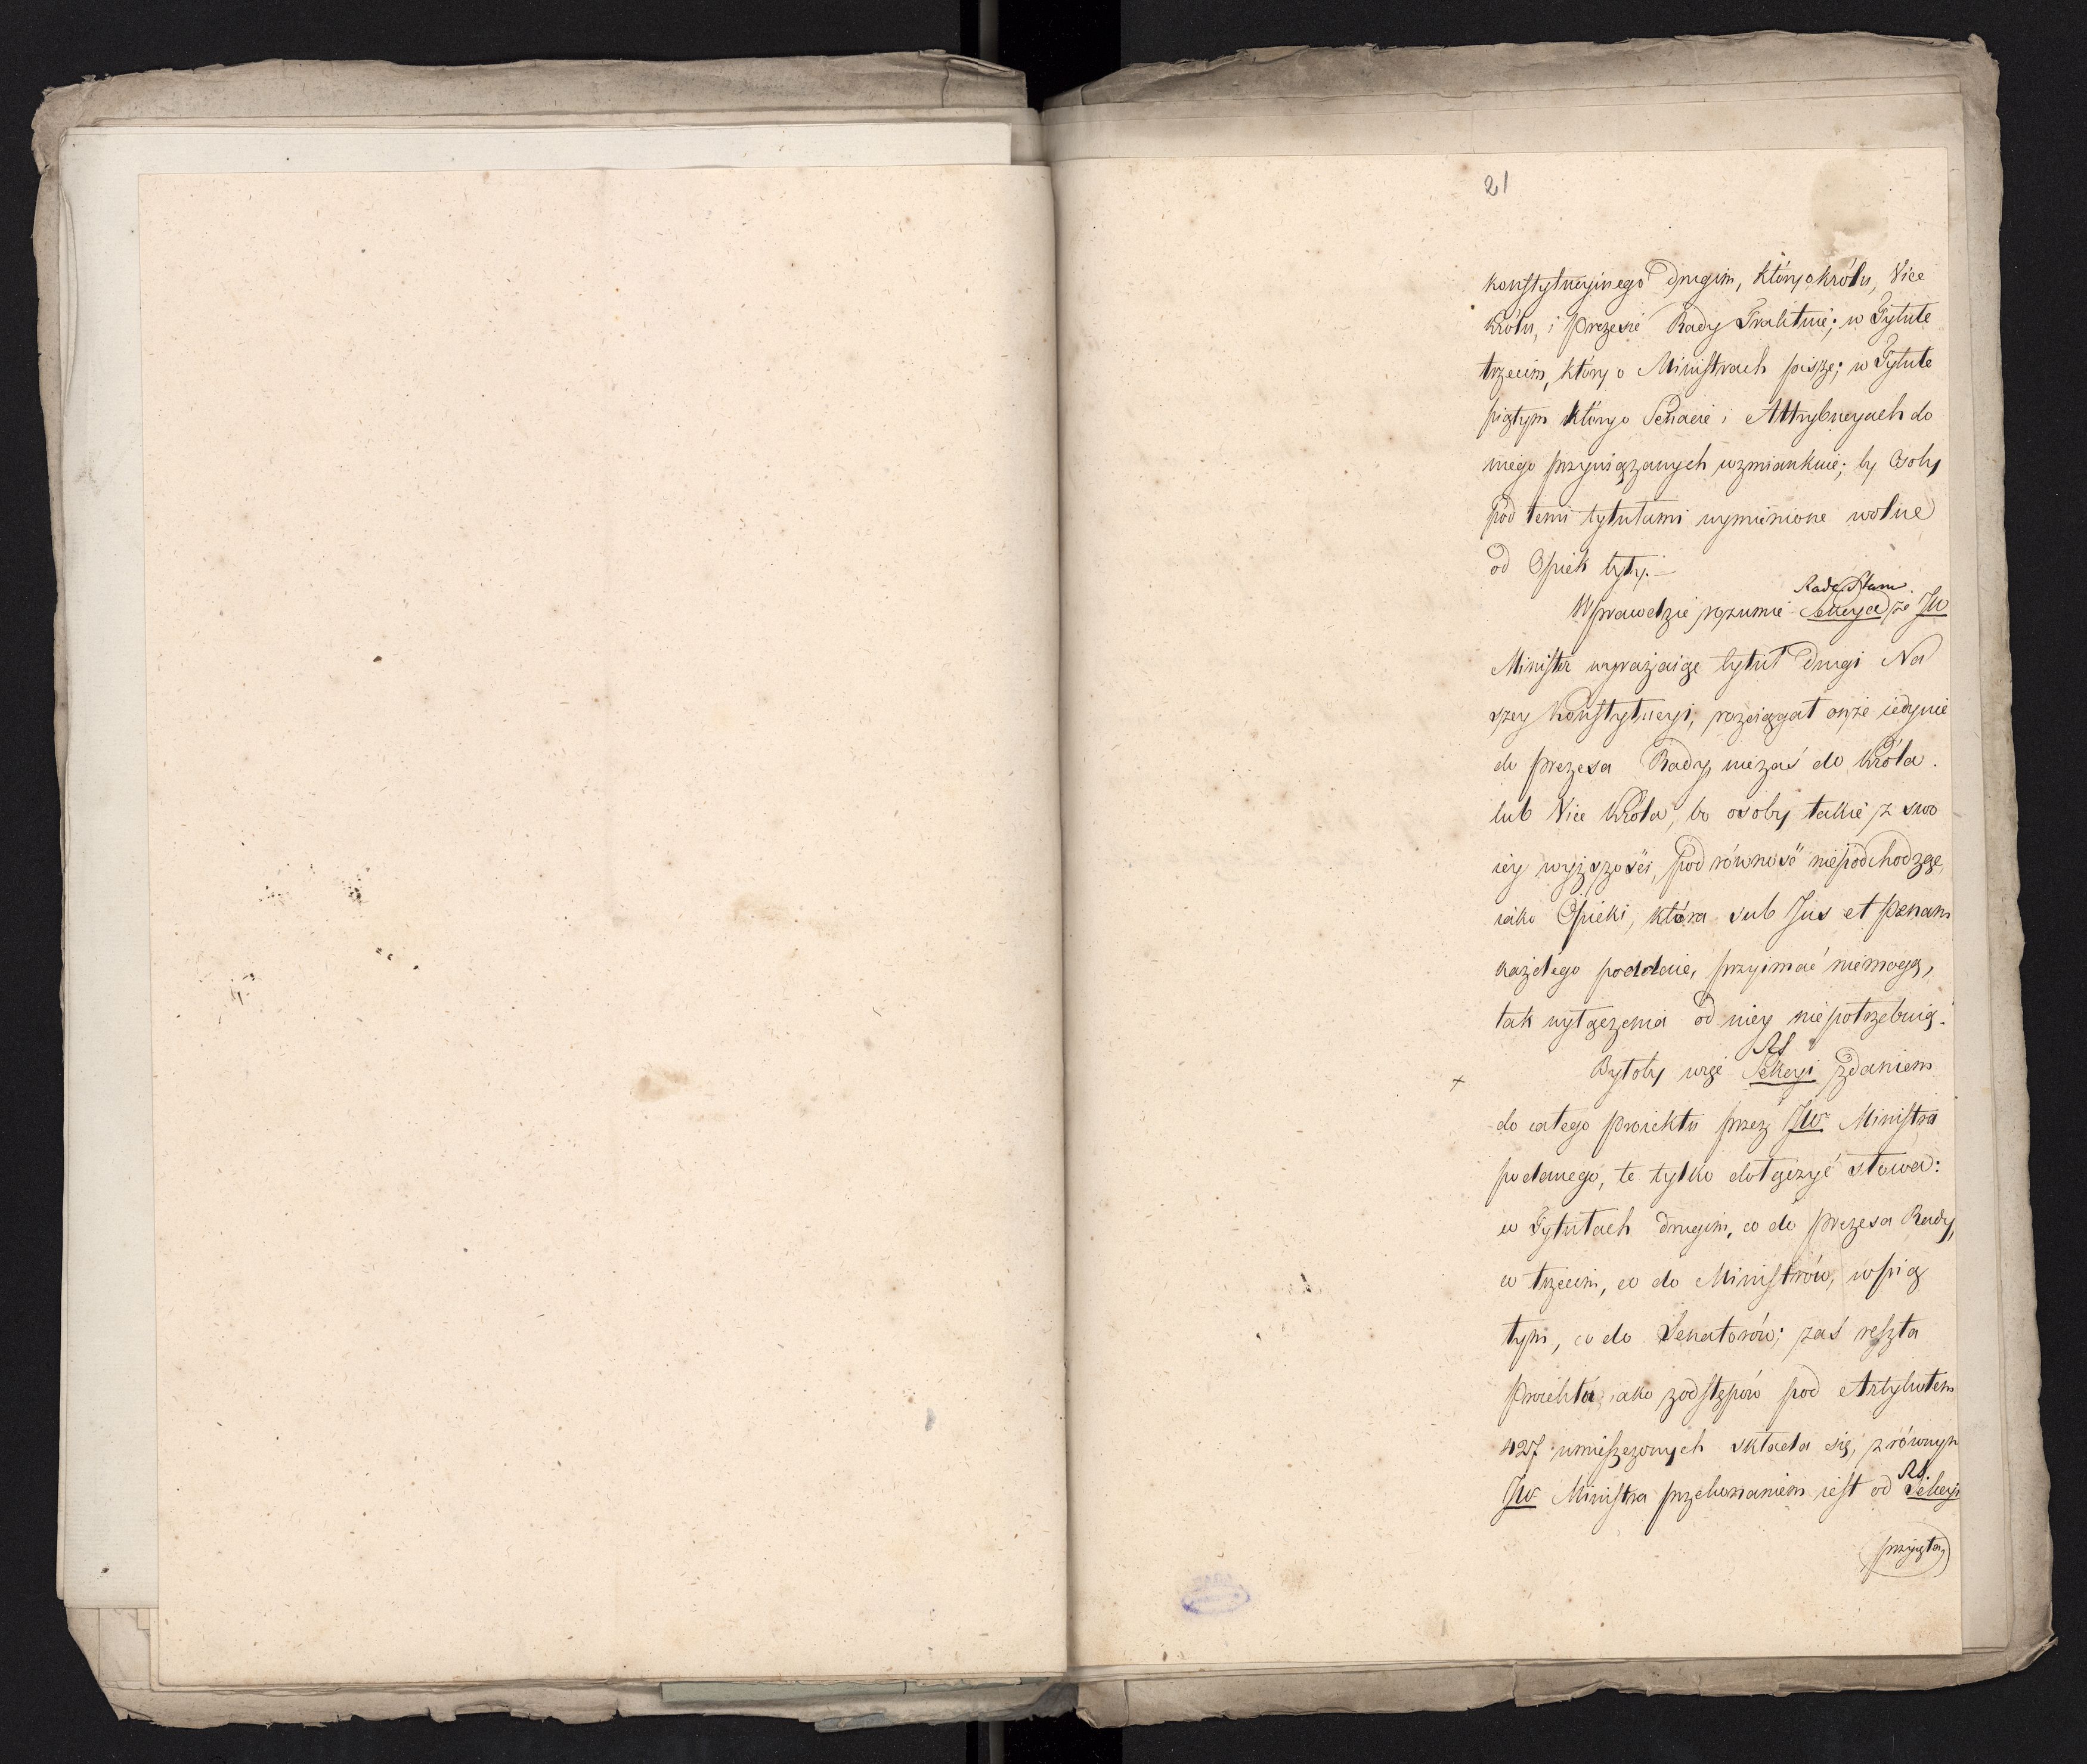 21
konstytucyinego drugim, który o królu, Vice
królu, i prezesie Rady Traktuie; w Tytule
trzecim, który o Ministrach pisze; w Tytule
piątym który o Senacie i Attrybucyach do
niego przywiązanych wzmiankuie; by Osoby
pod temi tytułami wymienione wolne
od Opiek były.—
Rada Stanu.
Wprawdzie rozumie Sekcya że JW
Minister wyrażaiąc tytuł drugi Na
szey Konstytucyi, rozciągał onże iedynie
do prezesa Rady, niezaś do Króla.
lub Vice Króla, bo osoby takie z swo
iey wyższości, pod równość niepodchodzące,
iako Opieki, która sub Jus et pœnam
każdego poddaie, przyimać niemogą,
tak wyłączenia od niey niepotrzebuią.
RS
+ Byłoby więc Sekcyi zdaniem
do całego proiektu przez JW. Ministra
podanego, te tylko dołączyć słowa:
w Tytułach drugim, co do prezesa Rady,
w trzecim, co do Ministrów, w pią
tym, co do Senatorów; zaś reszta
Proiektu iako z odstępów pod Artykułem
427 umieszczonych składa się, z równym
RS
JW. Ministra przekonaniem iest od Sekcyi
przyięta,